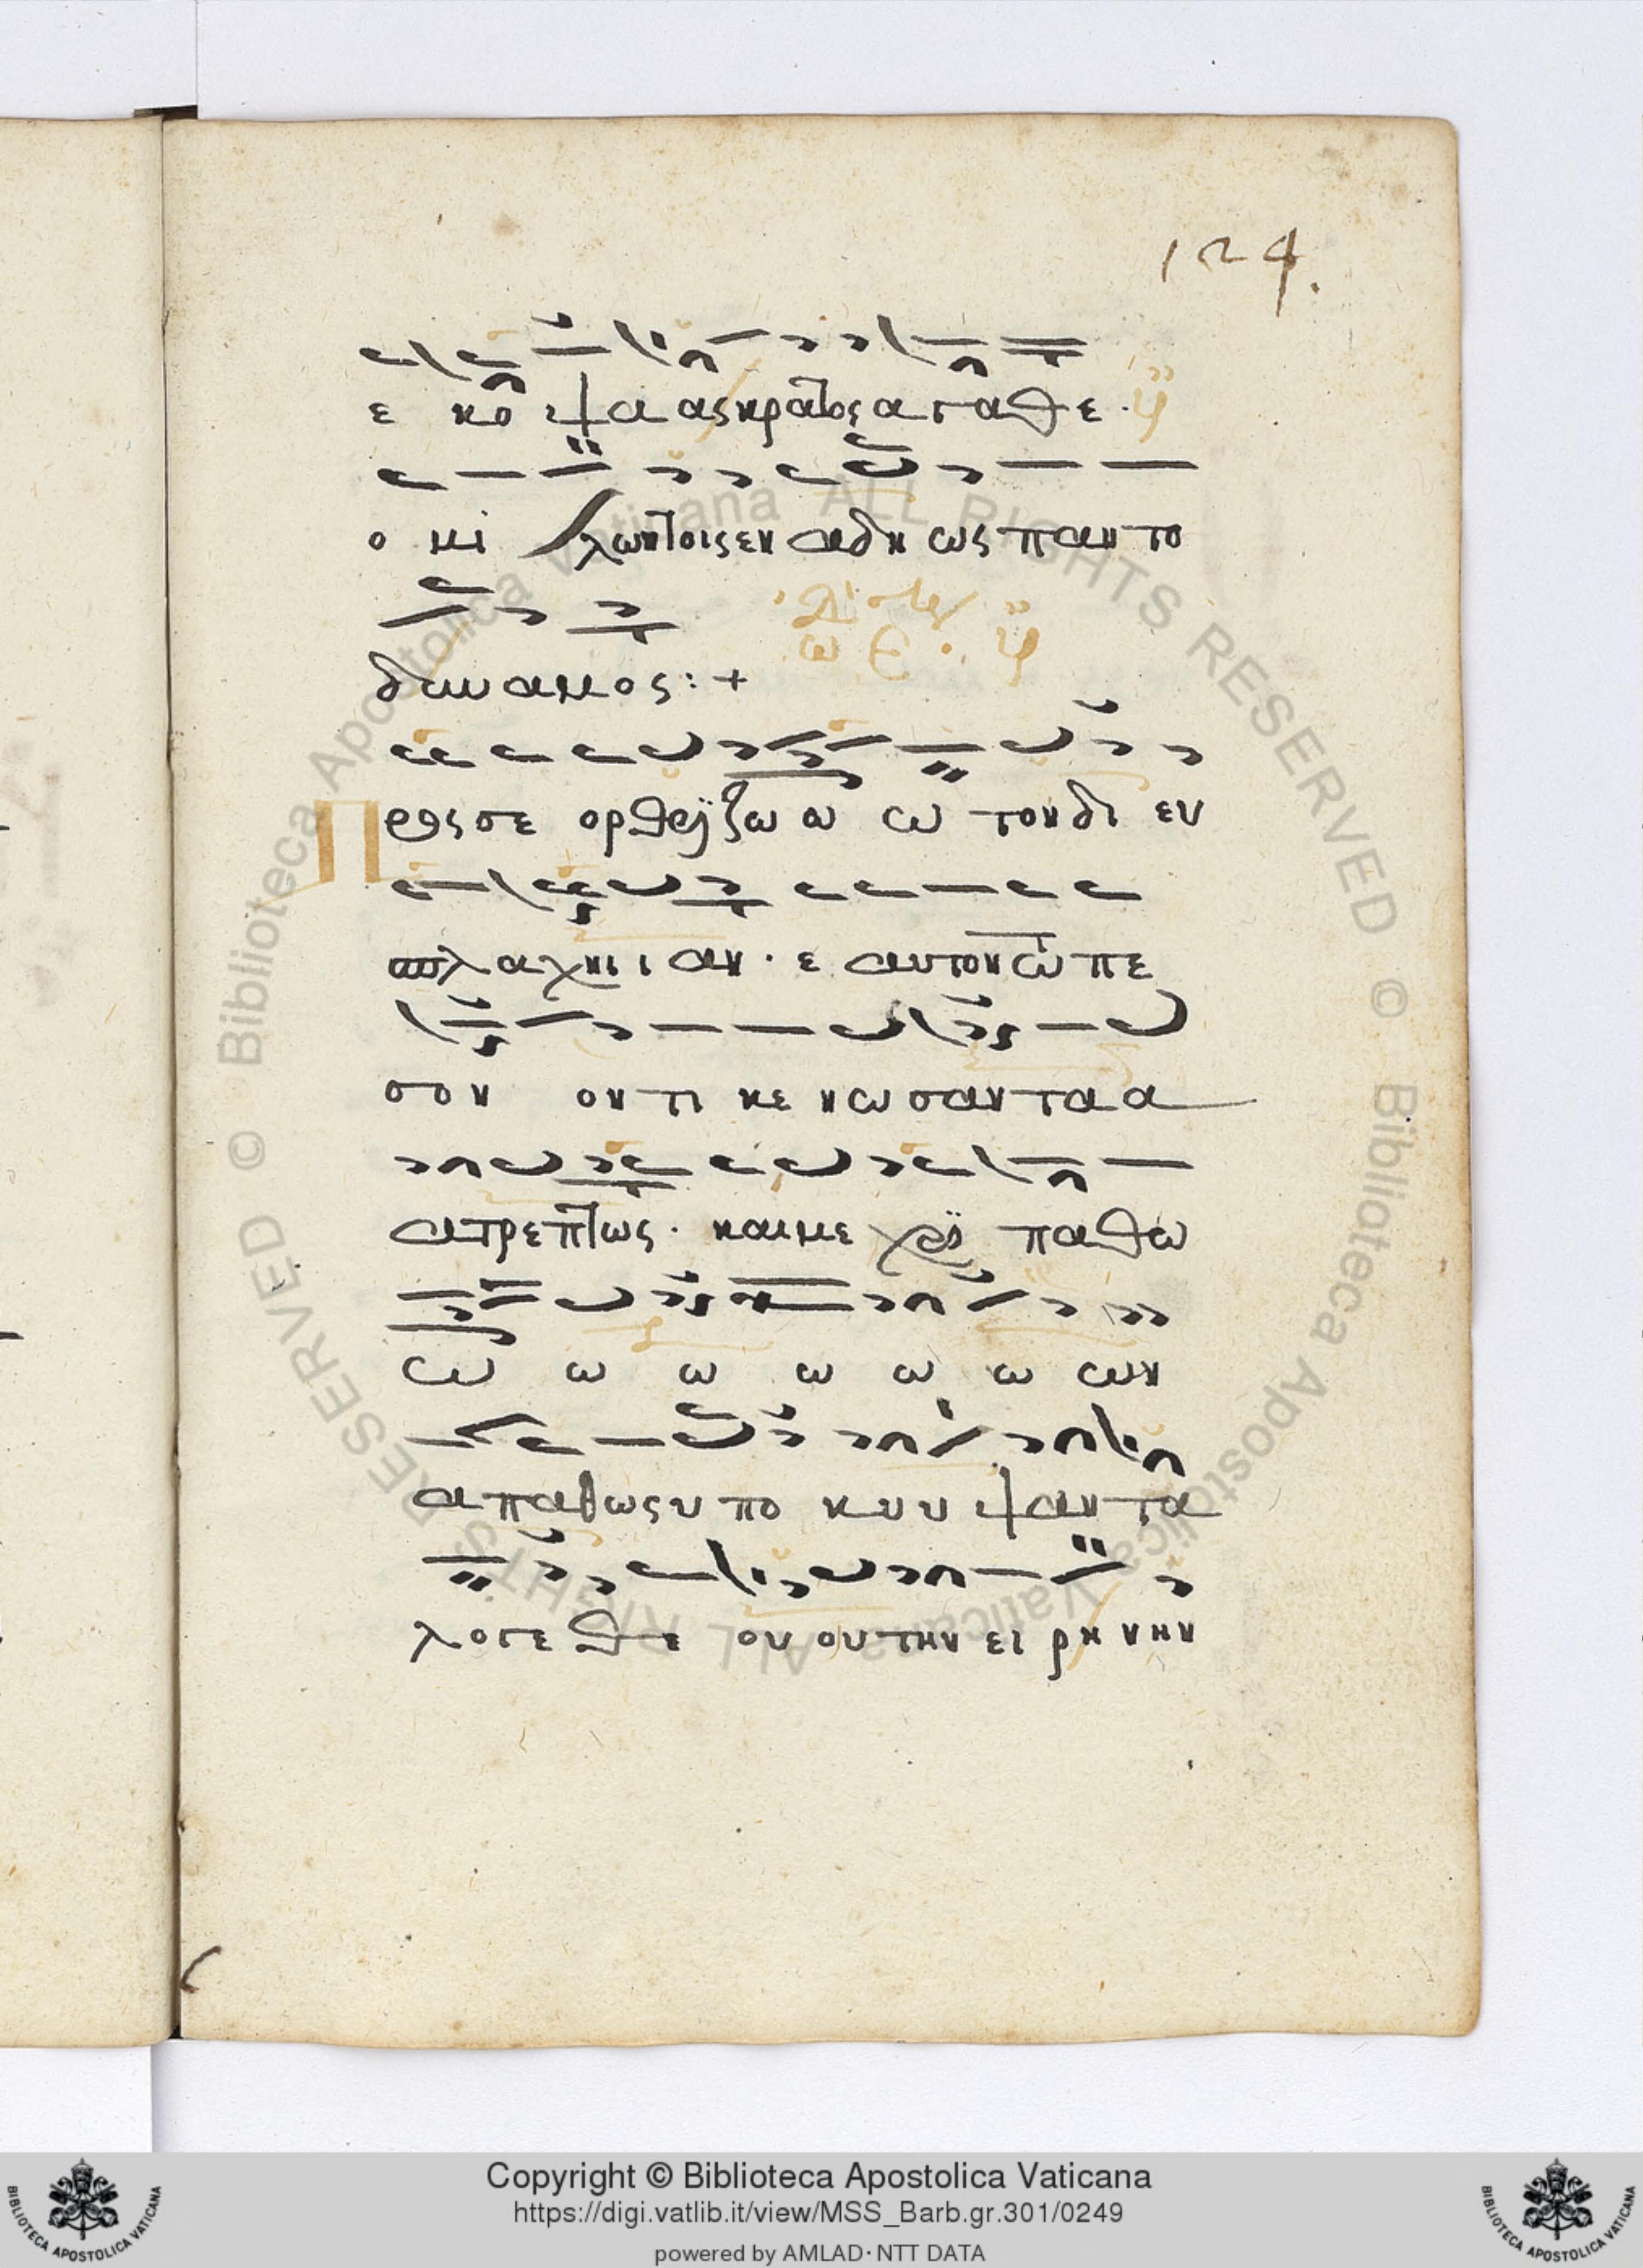 124.
ε κο ψα ας κρατος αγαθε.
ο κι λων τοις εν αδη ως παντο
δυναμος: +
Προς σε ορθρι ζω ω ω τον δι ευ
σπλαχνι ι αν · ε αυτον ω πε
σον ον τι κε νω σαντα α
ατρεπτως · και με χρι παθω
ω ω ω ω ω ω ων
απαθως υ πο κυ υ ψαν τα
λογε θε ου ου την ει ρη νην
Copyright © Biblioteca Apostolica Vaticana
https://digi.vatlib.it/view/MSS_Barb.gr.301/0249
powered by AMLAD·NTT DATA
BIBLIOTECA APOSTOLICA VATICANA
BIBLIOTECA APOSTOLICA VATICANA
© Biblioteca Apostolica Vaticana ALL RIGHTS RESERVED
© Biblioteca Apostolica Vaticana ALL RIGHTS RESERVED